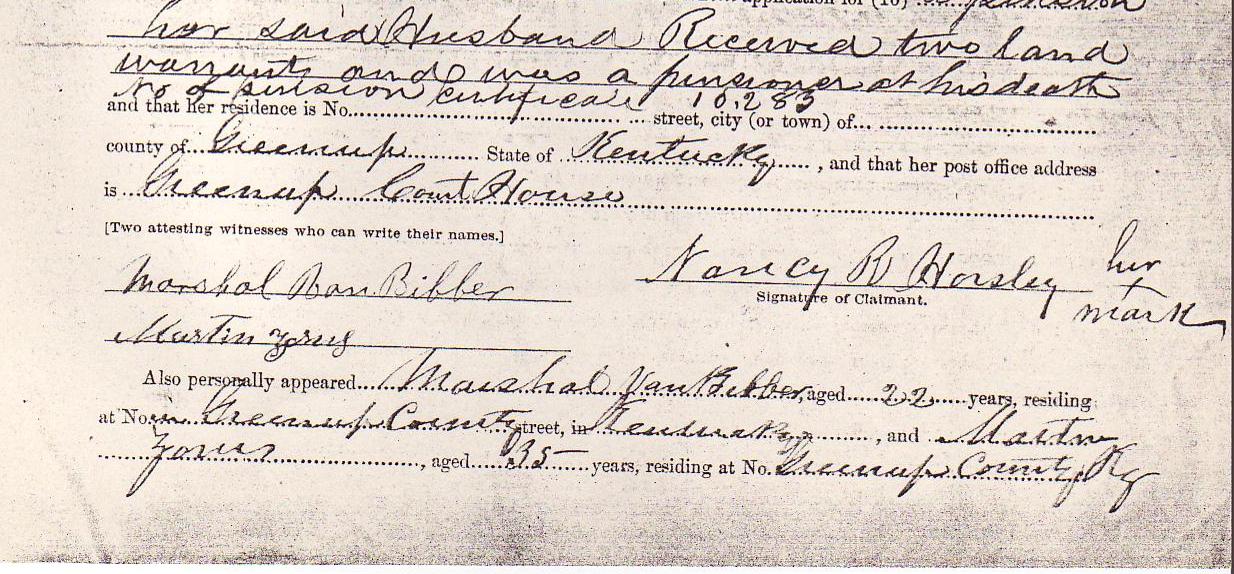 application for (10)
her said Husband Received two land
warrants and was a pensioner at his death
No of pension certificate 10,283
and that her residence is No. street, city (or town) of
county of Greenup State of Kentucky , and that her post office address
is Greenup Court House
[Two attesting witnesses who can write their names.]
Nancy R Horsley her
x
Signature of Claimant. mark
Marshal Van Bibber
Martin
Also personally appeared Marshal Van Bibber, aged 22 years, residing
at No. in Greenup County street, in Kentucky , and Martin
, aged 35 years, residing at No. Greenup County Ky